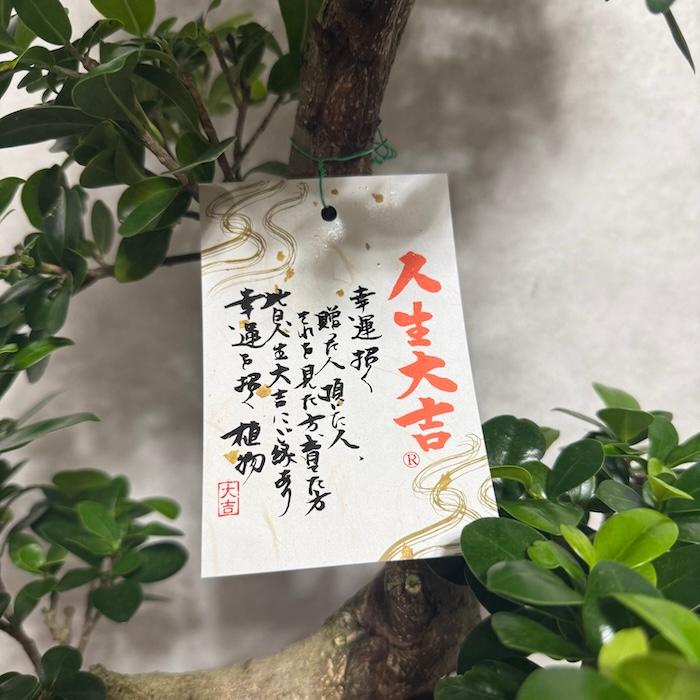 人生大吉
®
幸運招く
贈った人 頂いた人、
それを見た方、育てた方
皆人生大吉にご縁あり
幸運を招く 植物
大吉